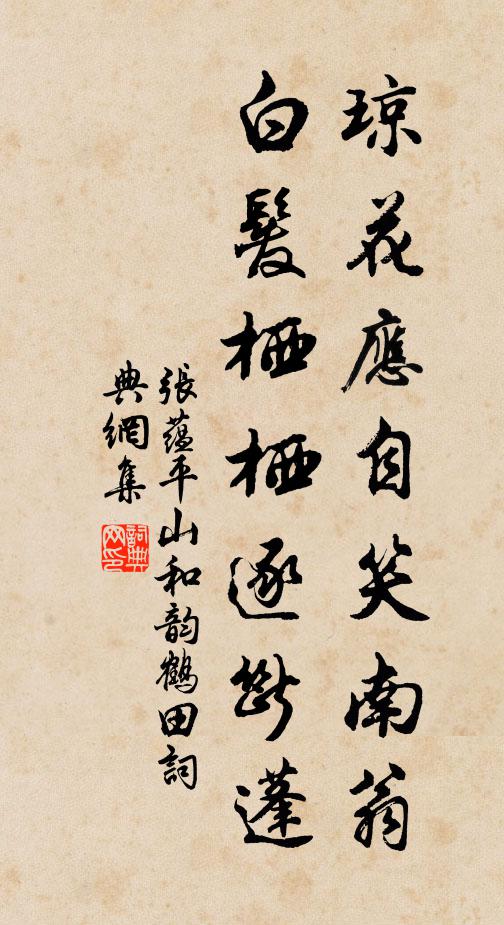 琼花應自笑南翁
白髮栖栖逐斷蓬
張蘊平山和韵鶴田詞
典網集
詞典
网印